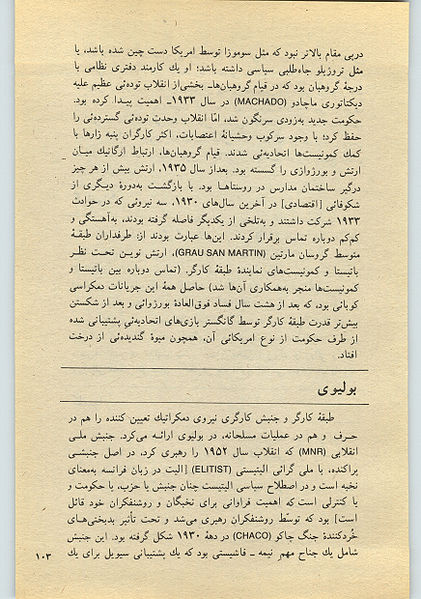 درپی مقام بالاتر نبود که مثل سوموزا توسط امریکا دست چین شده باشد، یا
مثل تروژیلو جاه‌طلبی سیاسی داشته باشد؛ او یك کارمند دفتری نظامی با
درجهٔ گروهبان بود که در قیام گروهبان‌ها ـ بخشی‌از انقلاب توده‌ئی عظیم علیه
دیکتاتوری ماچادو (MACHADO) در سال ۱۹۳۳ ـ اهمیت پیدا کرده بود.
حکومت جدید به‌زودی سرنگون شد، امّا انقلاب وحدت توده‌ئی گسترده‌ئی را
حفظ کرد؛ با وجود سرکوب وحشیانهٔ اعتصابات، اکثر کارگران پنبه زارها با
کمك کمونیست‌ها اتحادیه‌ئی شدند. قیام گروهبان‌ها، ارتباط ارگانیك میان
ارتش و بورژوازی را گسسته بود. بعداز سال ۱۹۳۵، ارتش بیش از هر چیز
درگیر ساختمان مدارس در روستاها بود. با بازگشت به‌دورهٔ دیگری از
شکوفائی [اقتصادی] در آخرین سال‌های ۱۹۳۰، سه نیروئی که در حوادث
۱۹۳۳ شرکت داشتند و به‌تلخی از یکدیگر فاصله گرفته بودند، به‌آهستگی و
کم‌کم دوباره تماس برقرار کردند. این‌ها عبارت بودند از: طرفداران طبقهٔ
متوسط گروسان مارتین (GRAU SAN MARTIN)، ارتش نویـن تحـت نظـر
باتیستا و کمونیست‌های نمایندهٔ طبقهٔ کارگر. (تماس دوباره بین باتیستا و
کمونیست‌ها منجر به‌همکاری آن‌ها شد) حاصل همهٔ این جریانات دمکراسی
کوبائی بود، که بعد از هشت سال فساد فوق‌العادهٔ بورژوائی و بعد از شکستن
بیش‌تر قدرت طبقهٔ کارگر توسط گانگستر بازی‌های اتحادیه‌ئی پشتیبانی شده
از طرف حکومت از نوع امریکائی آن، همچون میوهٔ گندیده‌ئی از درخت
افتاد.
بولیوی
طبقهٔ کارگر و جنبش کارگری نیروی دمکراتیك تعیین کننده را هم در
حـرف و هم در عملیات مسلحانه، در بولیوی ارائـه می‌کرد. جنبش ملـی
انقلابی (MNR) که انقلاب سال ۱۹۵۲ را رهبری کرد، در اصل جنبشـی
پراکنده، با ملی گرائی الیتیستی (ELITIST) [الیت در زبان فرانسه به‌معنای
نخبه است و در اصطلاح سیاسی الیتیست چنان جنبش یا حزب، یا حکومت و
یا کنترلی است که اهمیت فراوانی برای نخبگان و روشنفکران خود قائل
است] بود که توسّط روشنفکران رهبری می‌شد و تحت تأثیر بدبختی‌هـای
خُردکنندهٔ جنگ چاکو (CHACO) در دههٔ ۱۹۳۰ شکل گرفته بود. این جنبش
شامل یك جناح مهم نیمه ـ فاشیستی بود که یك پشتیبانی سیویل برای یك
۱۰۳